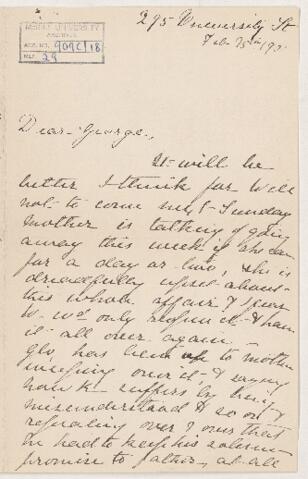 McGILL UNIVERSITY
ARCHIVES
ACC. NO. 909C/18
REF. 29
295 University St
Feb. 25th 190
Dear George,
It will be
better I think for Will
not to come next Sunday
mother is talking of going
away this week if she can
for a day or two, she is
dreadfully upset about
this whole affair & I fear
it wd only reopen it & have
it all over again.
Glo, has been up to mother
weeping over it & saying
how he suffers by being
misunderstood & so on &
repeating over & over that
he had to keep his solemn
promise to father, at all